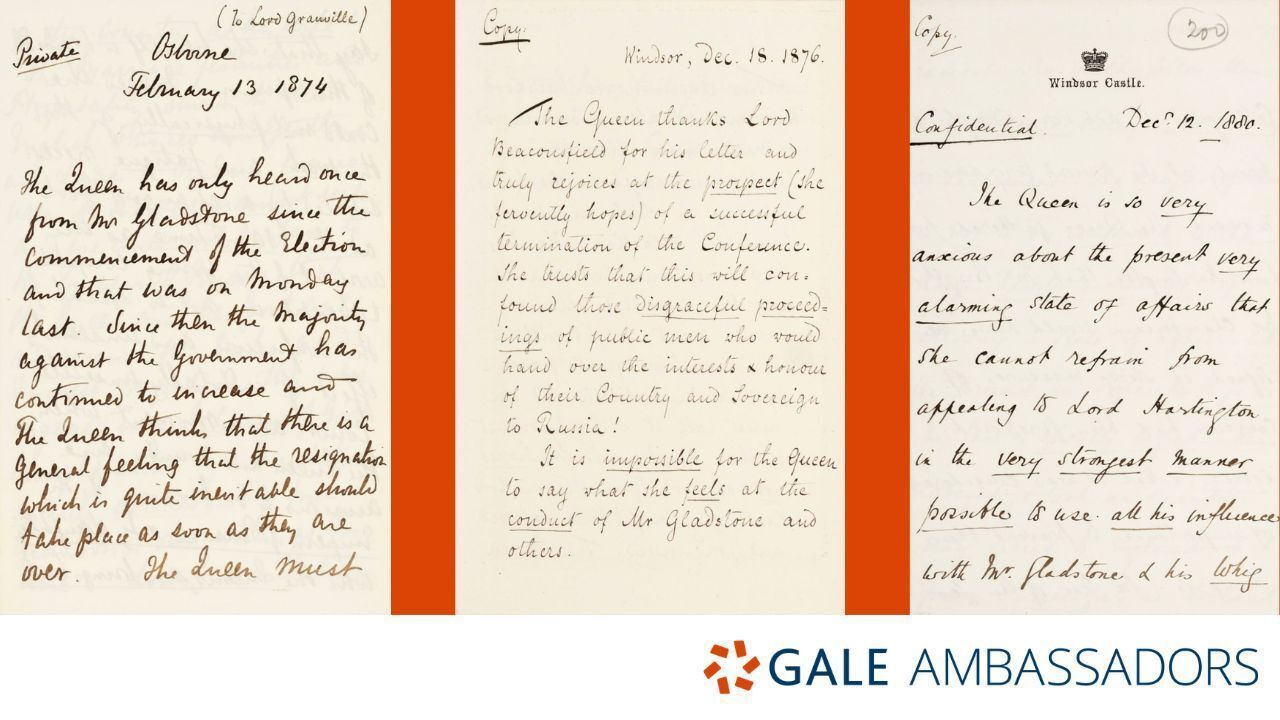 (To Lord Granville)
Private
Osborne
February 13 1874
The Queen has only heard once
from Mr Gladstone since the
commencement of the Election
and that was on Monday
last. Since then the Majority
against the Government has
continued to increase and
The Queen thinks that there is a
general feeling that the resignation
which is quite inevitable should
take place as soon as they are
over. The Queen must
Copy.
Windsor, Dec. 18. 1876.
The Queen thanks Lord
Beaconsfield for his letter and
truly rejoices at the prospect (she
fervently hopes) of a successful
termination of the Conference.
She trusts that this will con-
found those disgraceful proceed=
ings of public men who would
hand over the interests & honour
of their Country and Sovereign
to Russia!
It is impossible for the Queen
to say what she feels at the
conduct of Mr Gladstone and
others.
Copy.
200
Windsor Castle.
Confidential.
Decr. 12. 1880.
The Queen is so very
anxious about the present very
alarming state of affairs that
she cannot refrain from
appealing to Lord Hartington
in the very strongest manner
possible to use all his influence
with Mr. Gladstone & his Whig
GALE AMBASSADORS